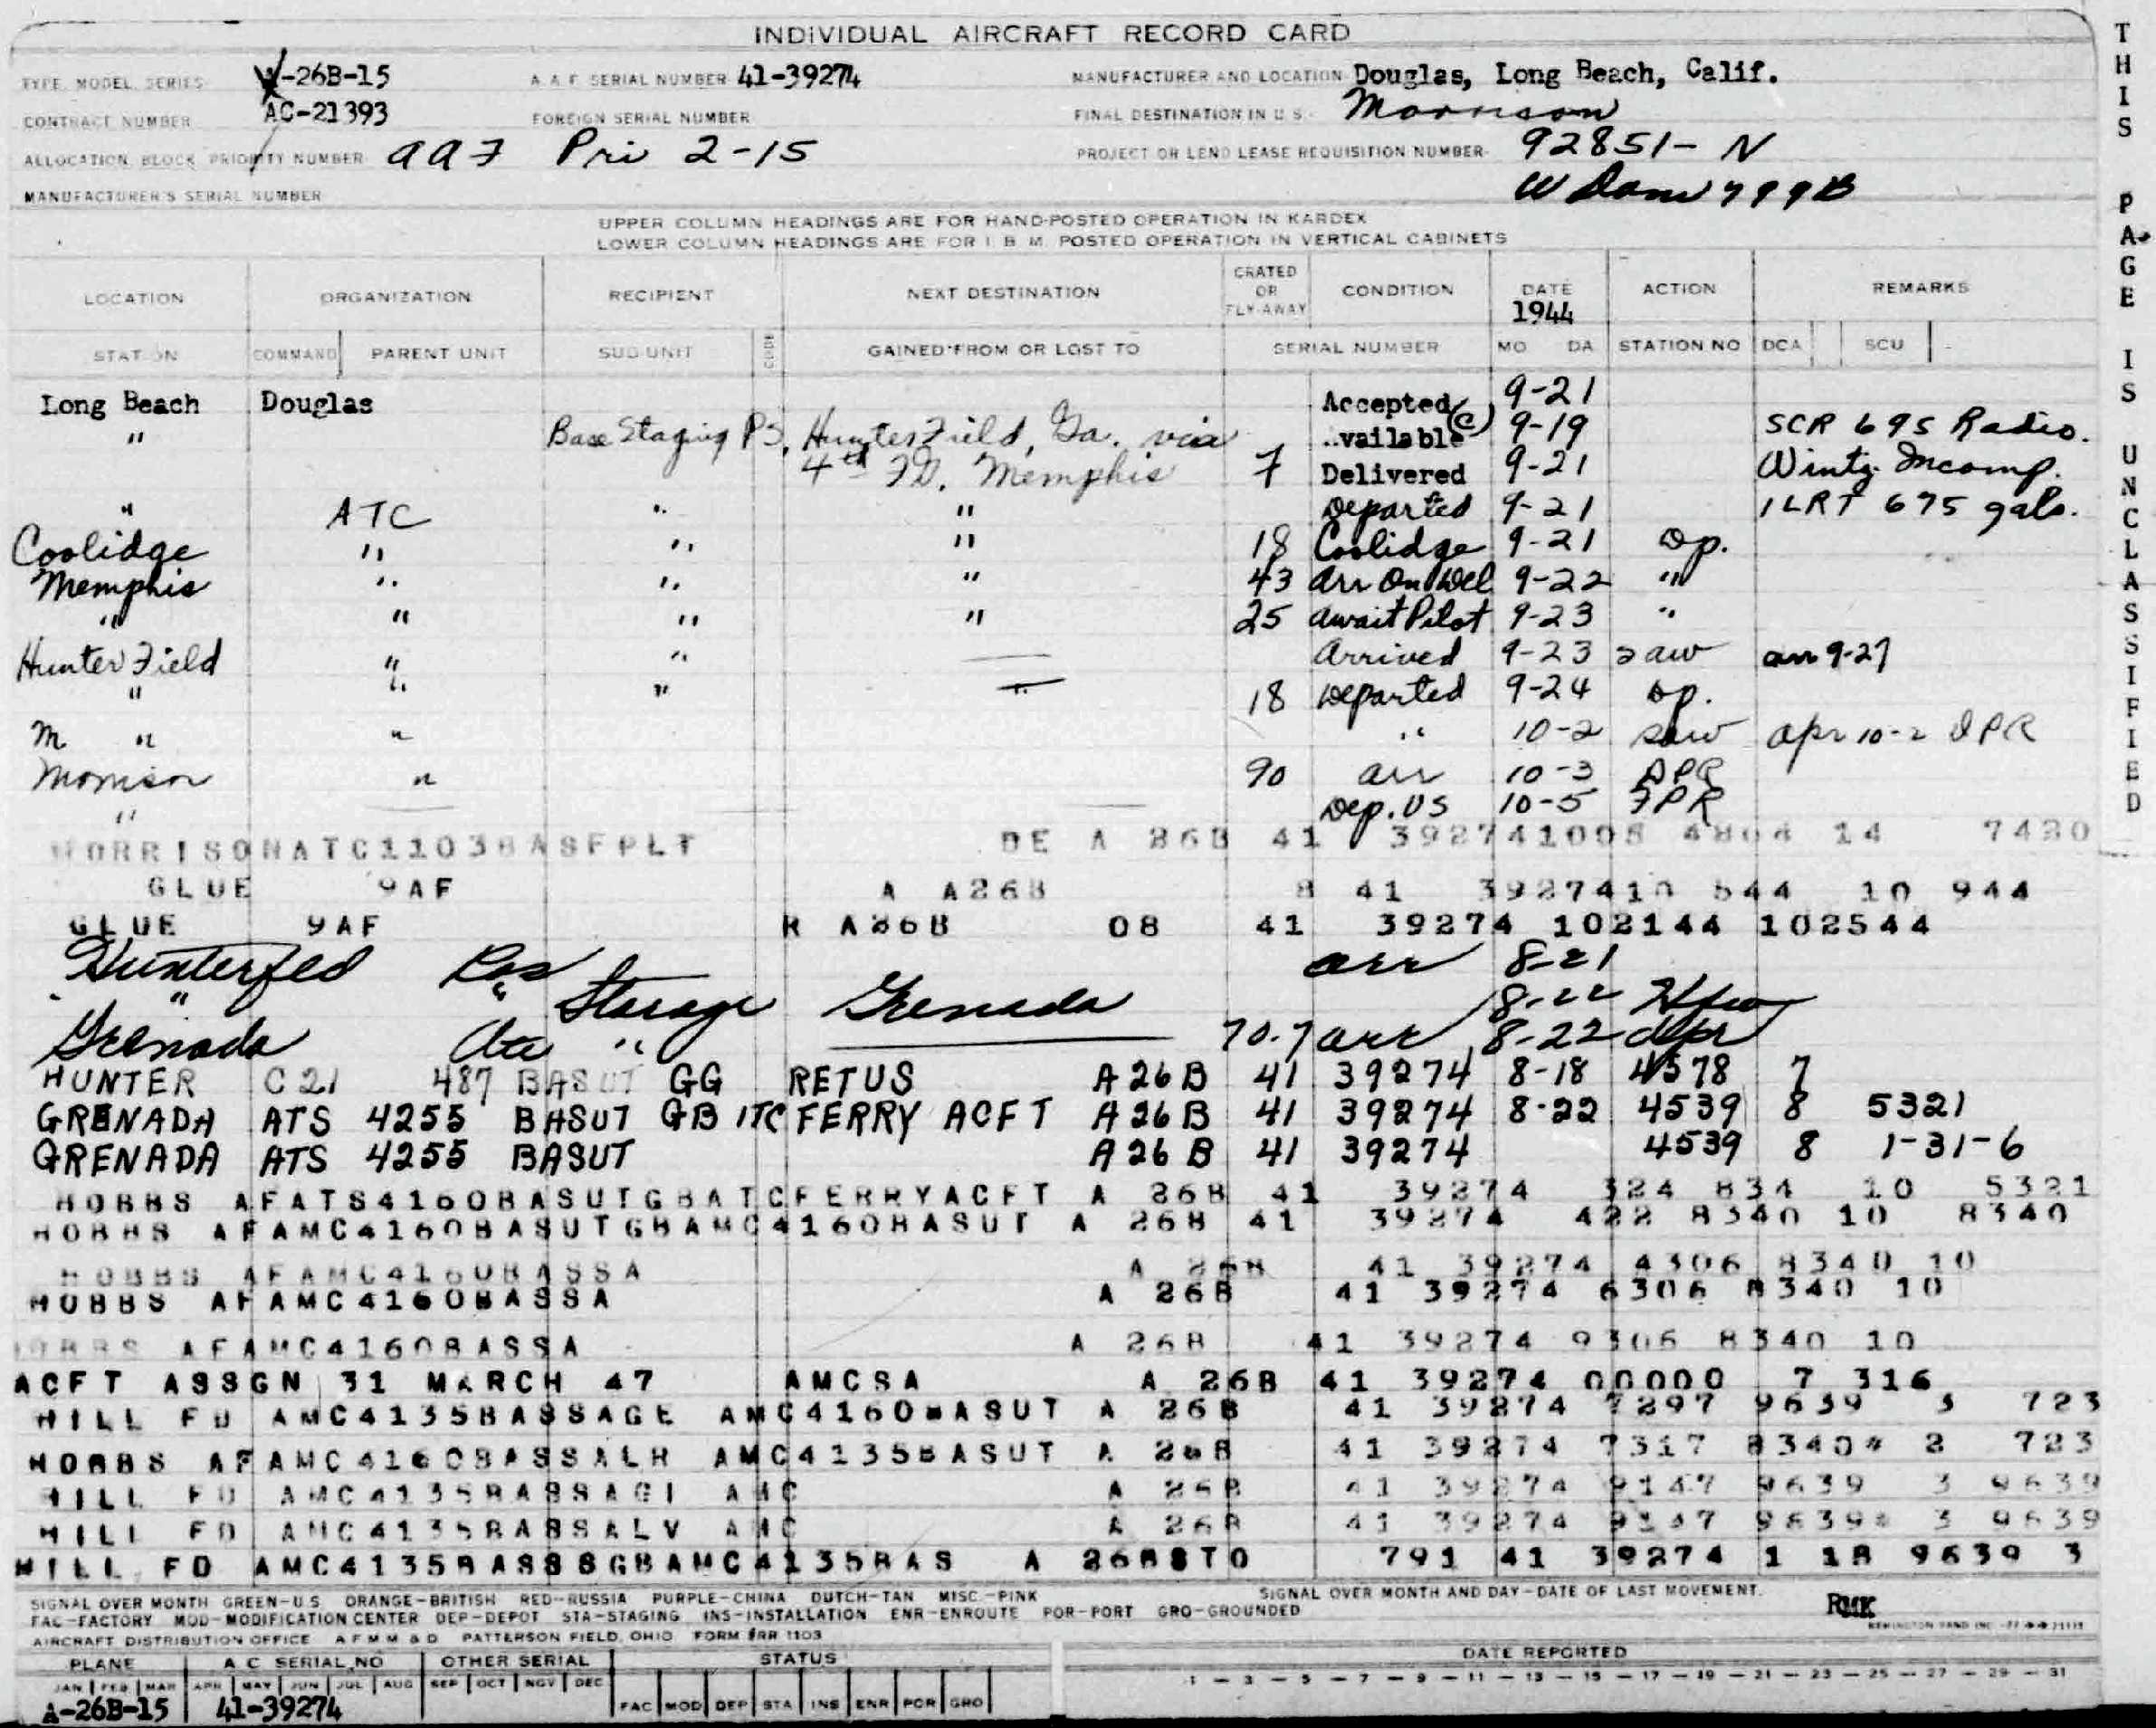 INDIVIDUAL AIRCRAFT RECORD CARD
TYPE, MODEL, SERIES -26B-15 A.A.F. SERIAL NUMBER 41-39274 MANUFACTURER AND LOCATION Douglas, Long Beach, Calif.
CONTRACT NUMBER AC-21393 FOREIGN SERIAL NUMBER FINAL DESTINATION IN U.S. Morrison
ALLOCATION, BLOCK, PRIORITY NUMBER AAF Pri 2-15 PROJECT OR LEND LEASE REQUISITION NUMBER 92851-N
MANUFACTURER'S SERIAL NUMBER
UPPER COLUMN HEADINGS ARE FOR HAND-POSTED OPERATION IN KARDEX
LOWER COLUMN HEADINGS ARE FOR I. B. M. POSTED OPERATION IN VERTICAL CABINETS
LOCATION ORGANIZATION RECIPIENT NEXT DESTINATION CRATED OR FLY-AWAY CONDITION DATE 1944 ACTION REMARKS
STATION COMMAND PARENT UNIT SUB UNIT CODE GAINED FROM OR LOST TO SERIAL NUMBER MO DA STATION NO DCA SCU
Long Beach Douglas Accepted 9-21
" Base Staging PS, Hunter Field, Ga. via vailable 9-19 SCR 695 Radio.
4th FG. Memphis 7 Delivered 9-21 Wintz. Incomp.
" ATC " " Departed 9-21 1LRT 675 gals.
Coolidge " " " 18 Coolidge 9-21 Dp.
Memphis " " " 43 Arr On Del 9-22 "
" " " " 25 Await Pilot 9-23 "
Hunter Field " " Arrived 9-23 saw arr 9-27
" " " " 18 Departed 9-24 Dp.
M " " " 10-2 saw apr 10-2 DPR
Morrison " 90 arr 10-3 DPR
" Dep. US 10-5 FPR
MORRISONATC1103BASFPLT DE A 26B 41 392741005 4804 14 7420
GLUE 9AF A A26B 8 41 3927410 544 10 944
GLUE 9AF R A26B 08 41 39274 102144 102544
Hunterfed arr 8-21
" " Storage Grenada 8-22
Grenada " 70.7 arr 8-22 dpr
HUNTER C21 487 BASUT GG RETUS A26B 41 39274 8-18 4578 7
GRENADA ATS 4255 BASUT GB ITC FERRY ACFT A26B 41 39274 8-22 4539 8 5321
GRENADA ATS 4255 BASUT A26B 41 39274 4539 8 1-31-6
HOBBS AFATS4160BASUTGBATCFERRYACFT A 26B 41 39274 324 834 10 5321
HOBBS AFAMC4160BASUTGBAMC4160BASUT A 26B 41 39274 422 8340 10 8340
HOBBS AFAMC4160BASSA A 26B 41 39274 4306 8340 10
HOBBS AFAMC4160BASSA A 26B 41 39274 6306 8340 10
HOBBS AFAMC4160BASSA A 26B 41 39274 9306 8340 10
ACFT ASSGN 31 MARCH 47 AMCSA A 26B 41 39274 00000 7 316
HILL FD AMC4135BASSAGE AMC4160BASUT A 26B 41 39274 7297 9639 3 723
HOBBS AFAMC4160BASSALR AMC4135BASUT A 26B 41 39274 7317 8340* 2 723
HILL FD AMC4135BASSAGI AMC A 26B 41 39274 9147 9639 3 9639
HILL FD AMC4135BASSALV AMC A 26B 41 39274 9147 9639* 3 9639
HILL FD AMC4135BASSSGBAMC4135BAS A 26BSTO 791 41 39274 1 18 9639 3
SIGNAL OVER MONTH GREEN-U.S. ORANGE-BRITISH RED-RUSSIA PURPLE-CHINA DUTCH-TAN MISC.-PINK SIGNAL OVER MONTH AND DAY-DATE OF LAST MOVEMENT.
FAC-FACTORY MOD-MODIFICATION CENTER DEP-DEPOT STA-STAGING INS-INSTALLATION ENR-ENROUTE POR-PORT GRO-GROUNDED
RMK
AIRCRAFT DISTRIBUTION OFFICE A F M M & D PATTERSON FIELD, OHIO FORM #RR 1103
PLANE A C SERIAL NO OTHER SERIAL STATUS DATE REPORTED
JAN FEB MAR APR MAY JUN JUL AUG SEP OCT NOV DEC 1 - 3 - 5 - 7 - 9 - 11 - 13 - 15 - 17 - 19 - 21 - 23 - 25 - 27 - 29 - 31
A-26B-15 41-39274 FAC MOD DEP STA INS ENR POR GRO
THIS PAGE IS UNCLASSIFIED